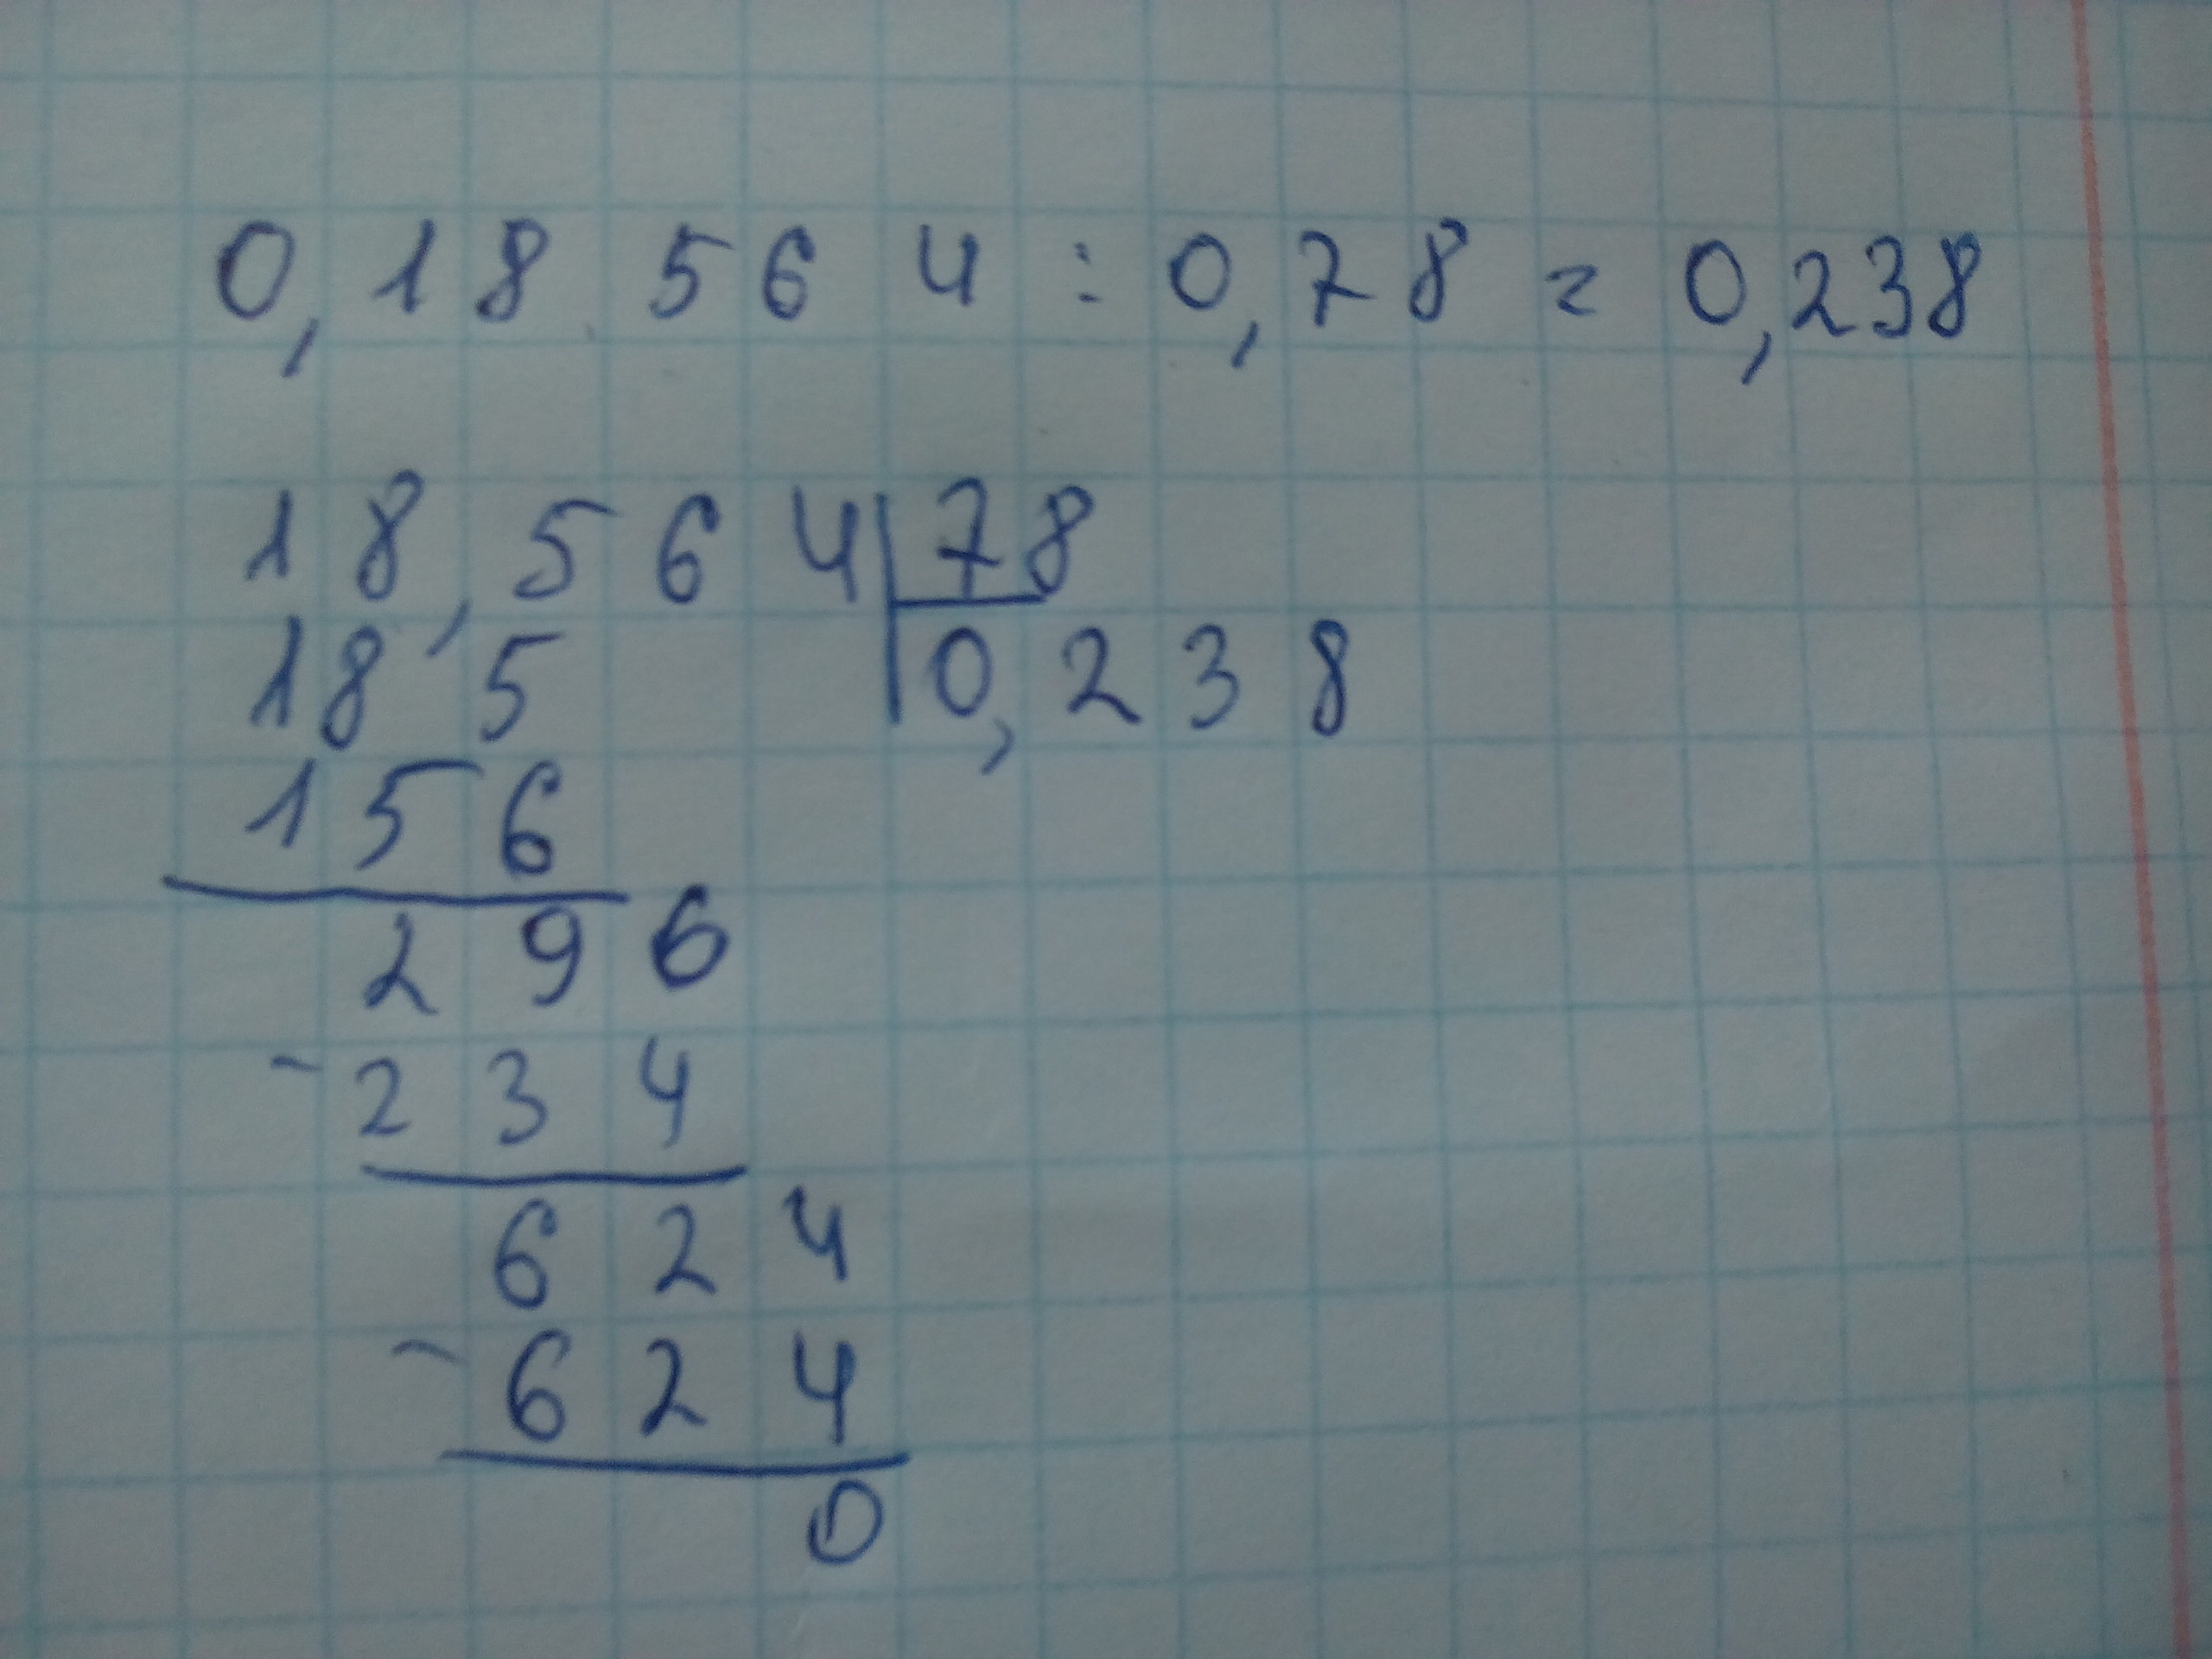 0,18564:0,78=0,238
18,564|78
185 |0,238
156
296
-234
624
-624
0